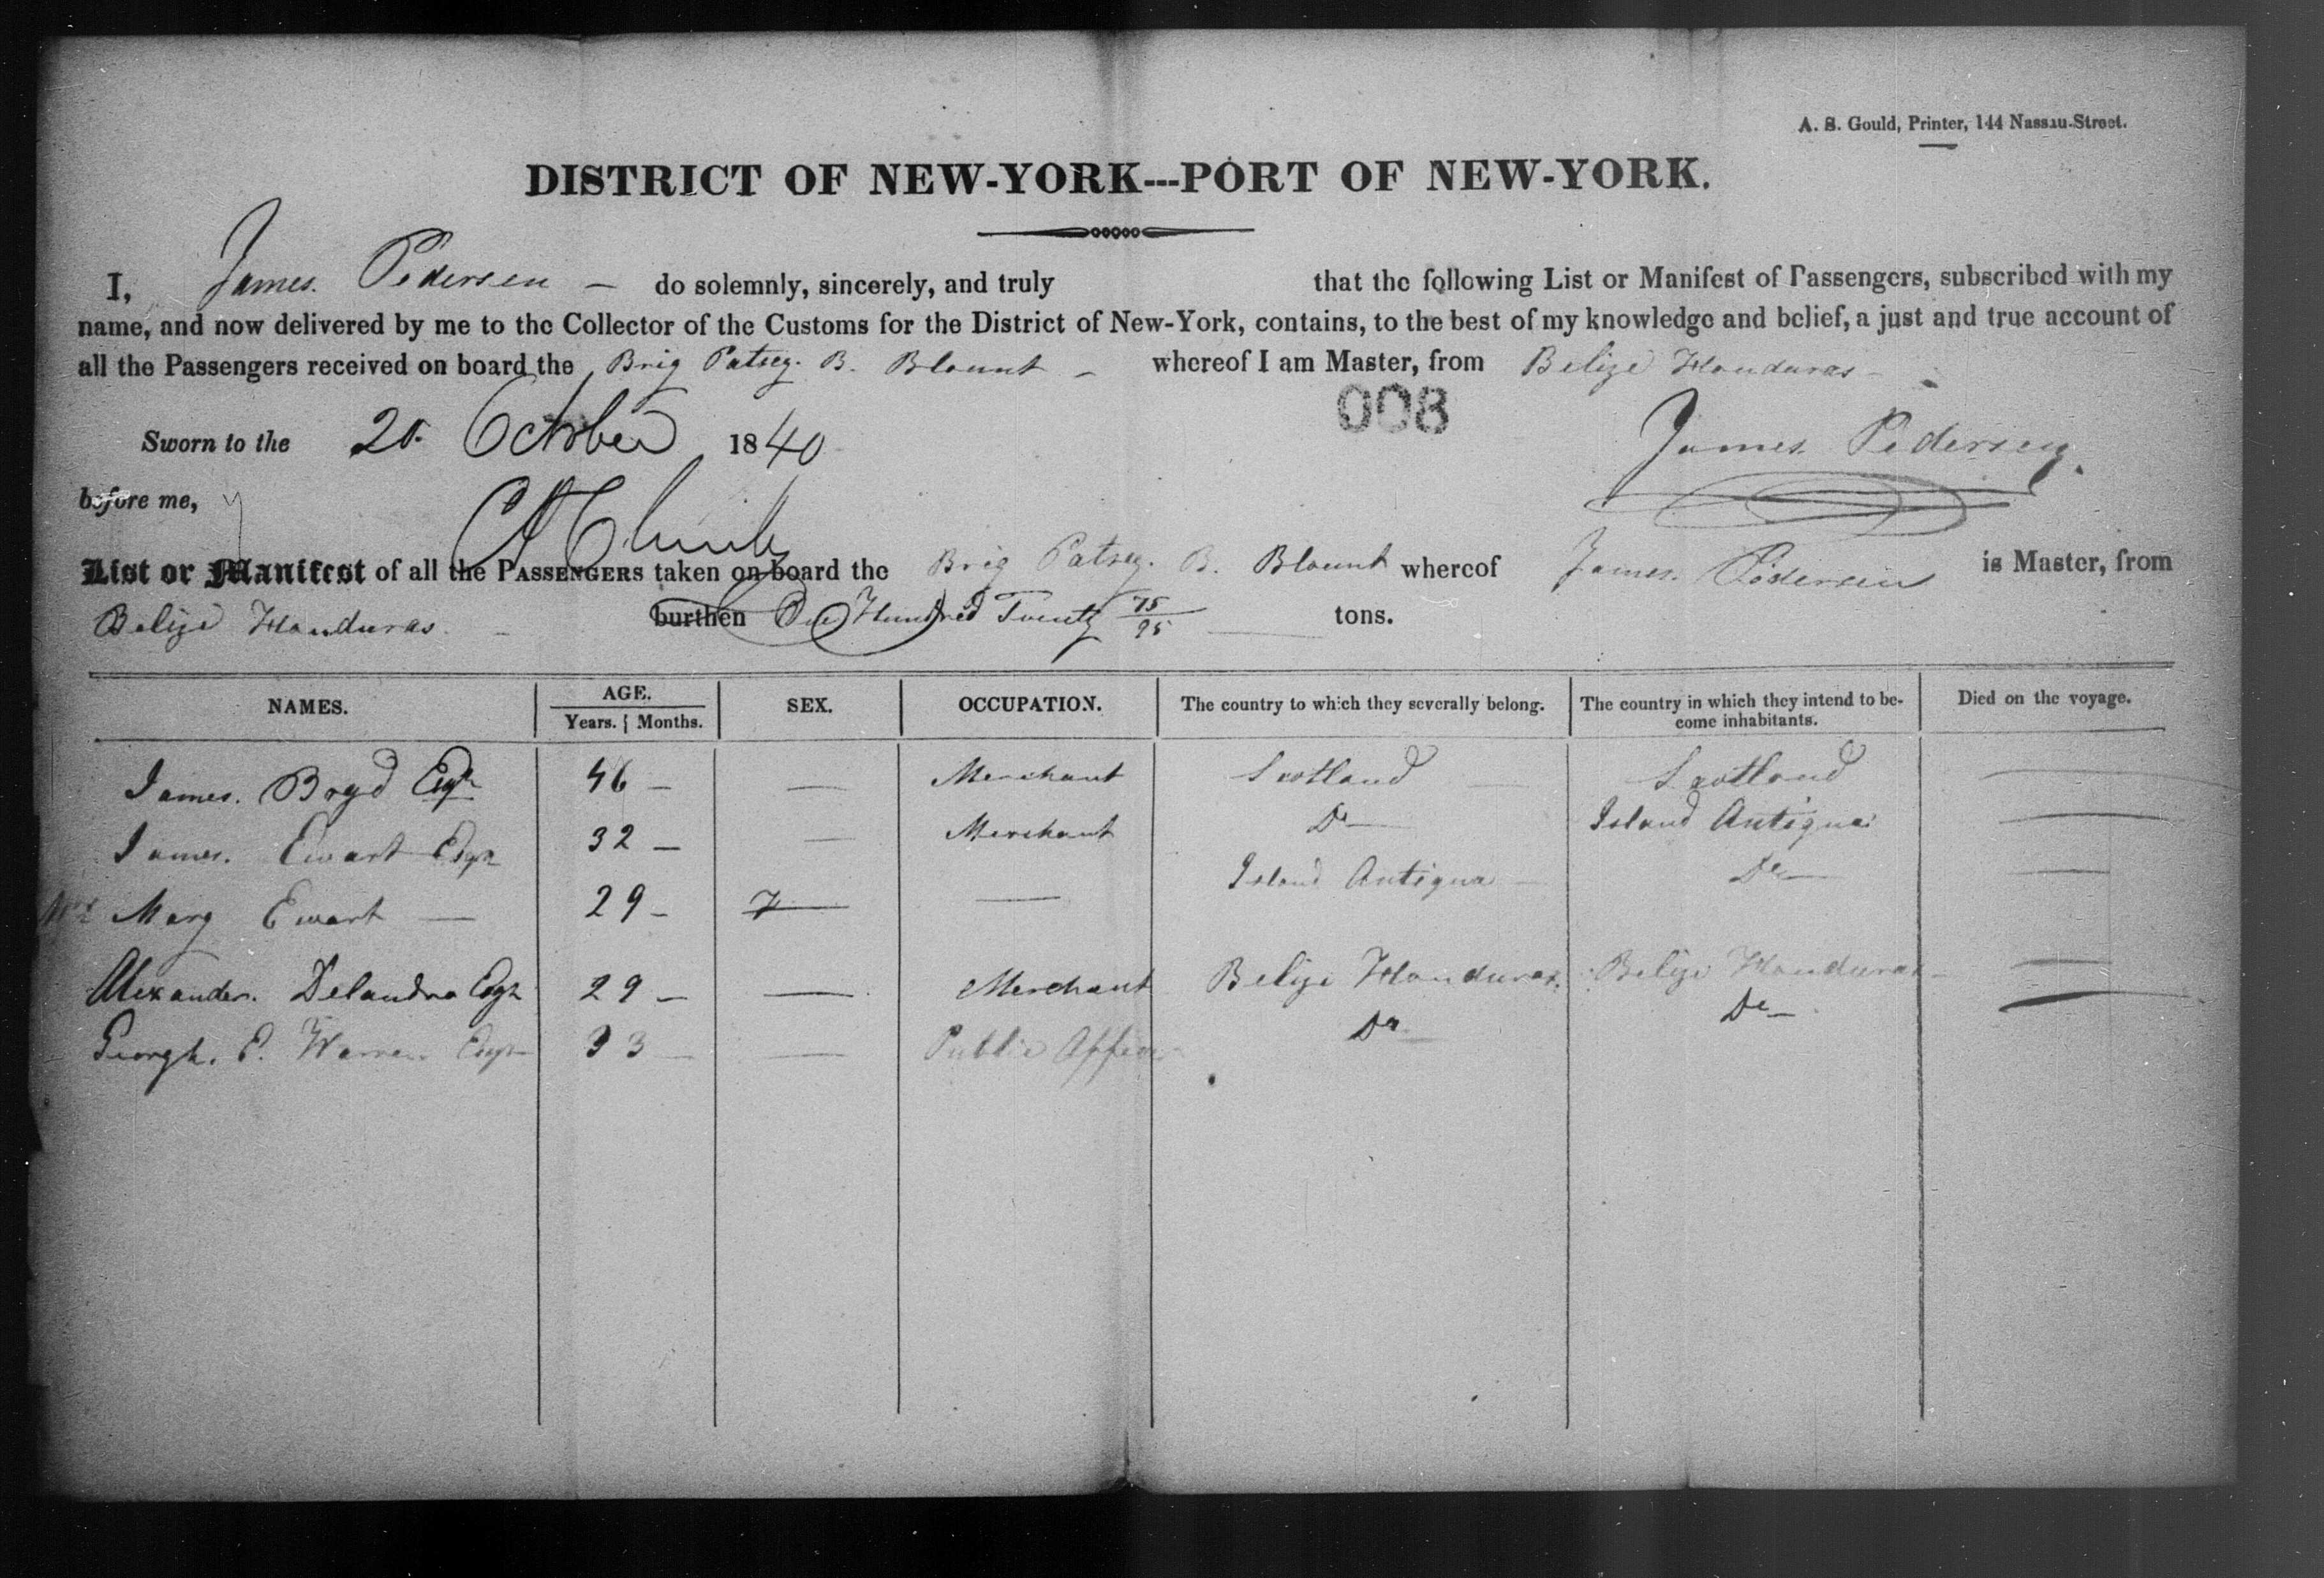 A. S. Gould, Printer, 144 Nassau-Street.
DISTRICT OF NEW-YORK---PORT OF NEW-YORK.
I, James Pedersen — do solemnly, sincerely, and truly that the following List or Manifest of Passengers, subscribed with my
name, and now delivered by me to the Collector of the Customs for the District of New-York, contains, to the best of my knowledge and belief, a just and true account of
all the Passengers received on board the Brig Patsey. B. Blount — whereof I am Master, from Belize Honduras —
008
Sworn to the 20. October 1840 James Pedersen
before me,
List or Manifest of all the PASSENGERS taken on board the Brig Patsey. B. Blount whereof James Pedersen is Master, from
Belize Honduras. burthen One Hundred Twenty 75/95 tons.
NAMES. AGE. SEX. OCCUPATION. The country to which they severally belong. The country in which they intend to become inhabitants. Died on the voyage.
Years. Months.
James. Boyd Esqr 46 — — Merchant Scotland — Scotland —
James. Ewart Esqr 32 — — Merchant Do — Island Antigua —
Mrs Mary Ewart — 29 — F — — Island Antigua — Do — —
Alexander. Delandra Esqr 29 — — Merchant Belize Honduras. Belize Honduras —
George. E. Warren Esqr 33 — — Public Officer Do — Do — —